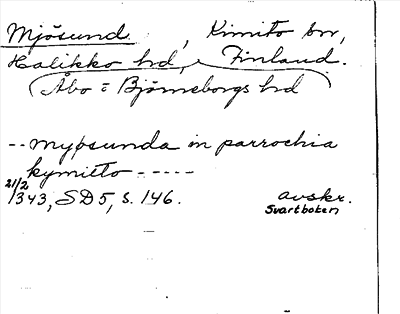 Mjösund, Kimito sn,
Halikko hd, Finland.
(Åbo o Björneborgs hd
-- myøsunda in parrochia
kymitto -----
21/2
1343, SD 5, s. 146. avskr.
Svartboken